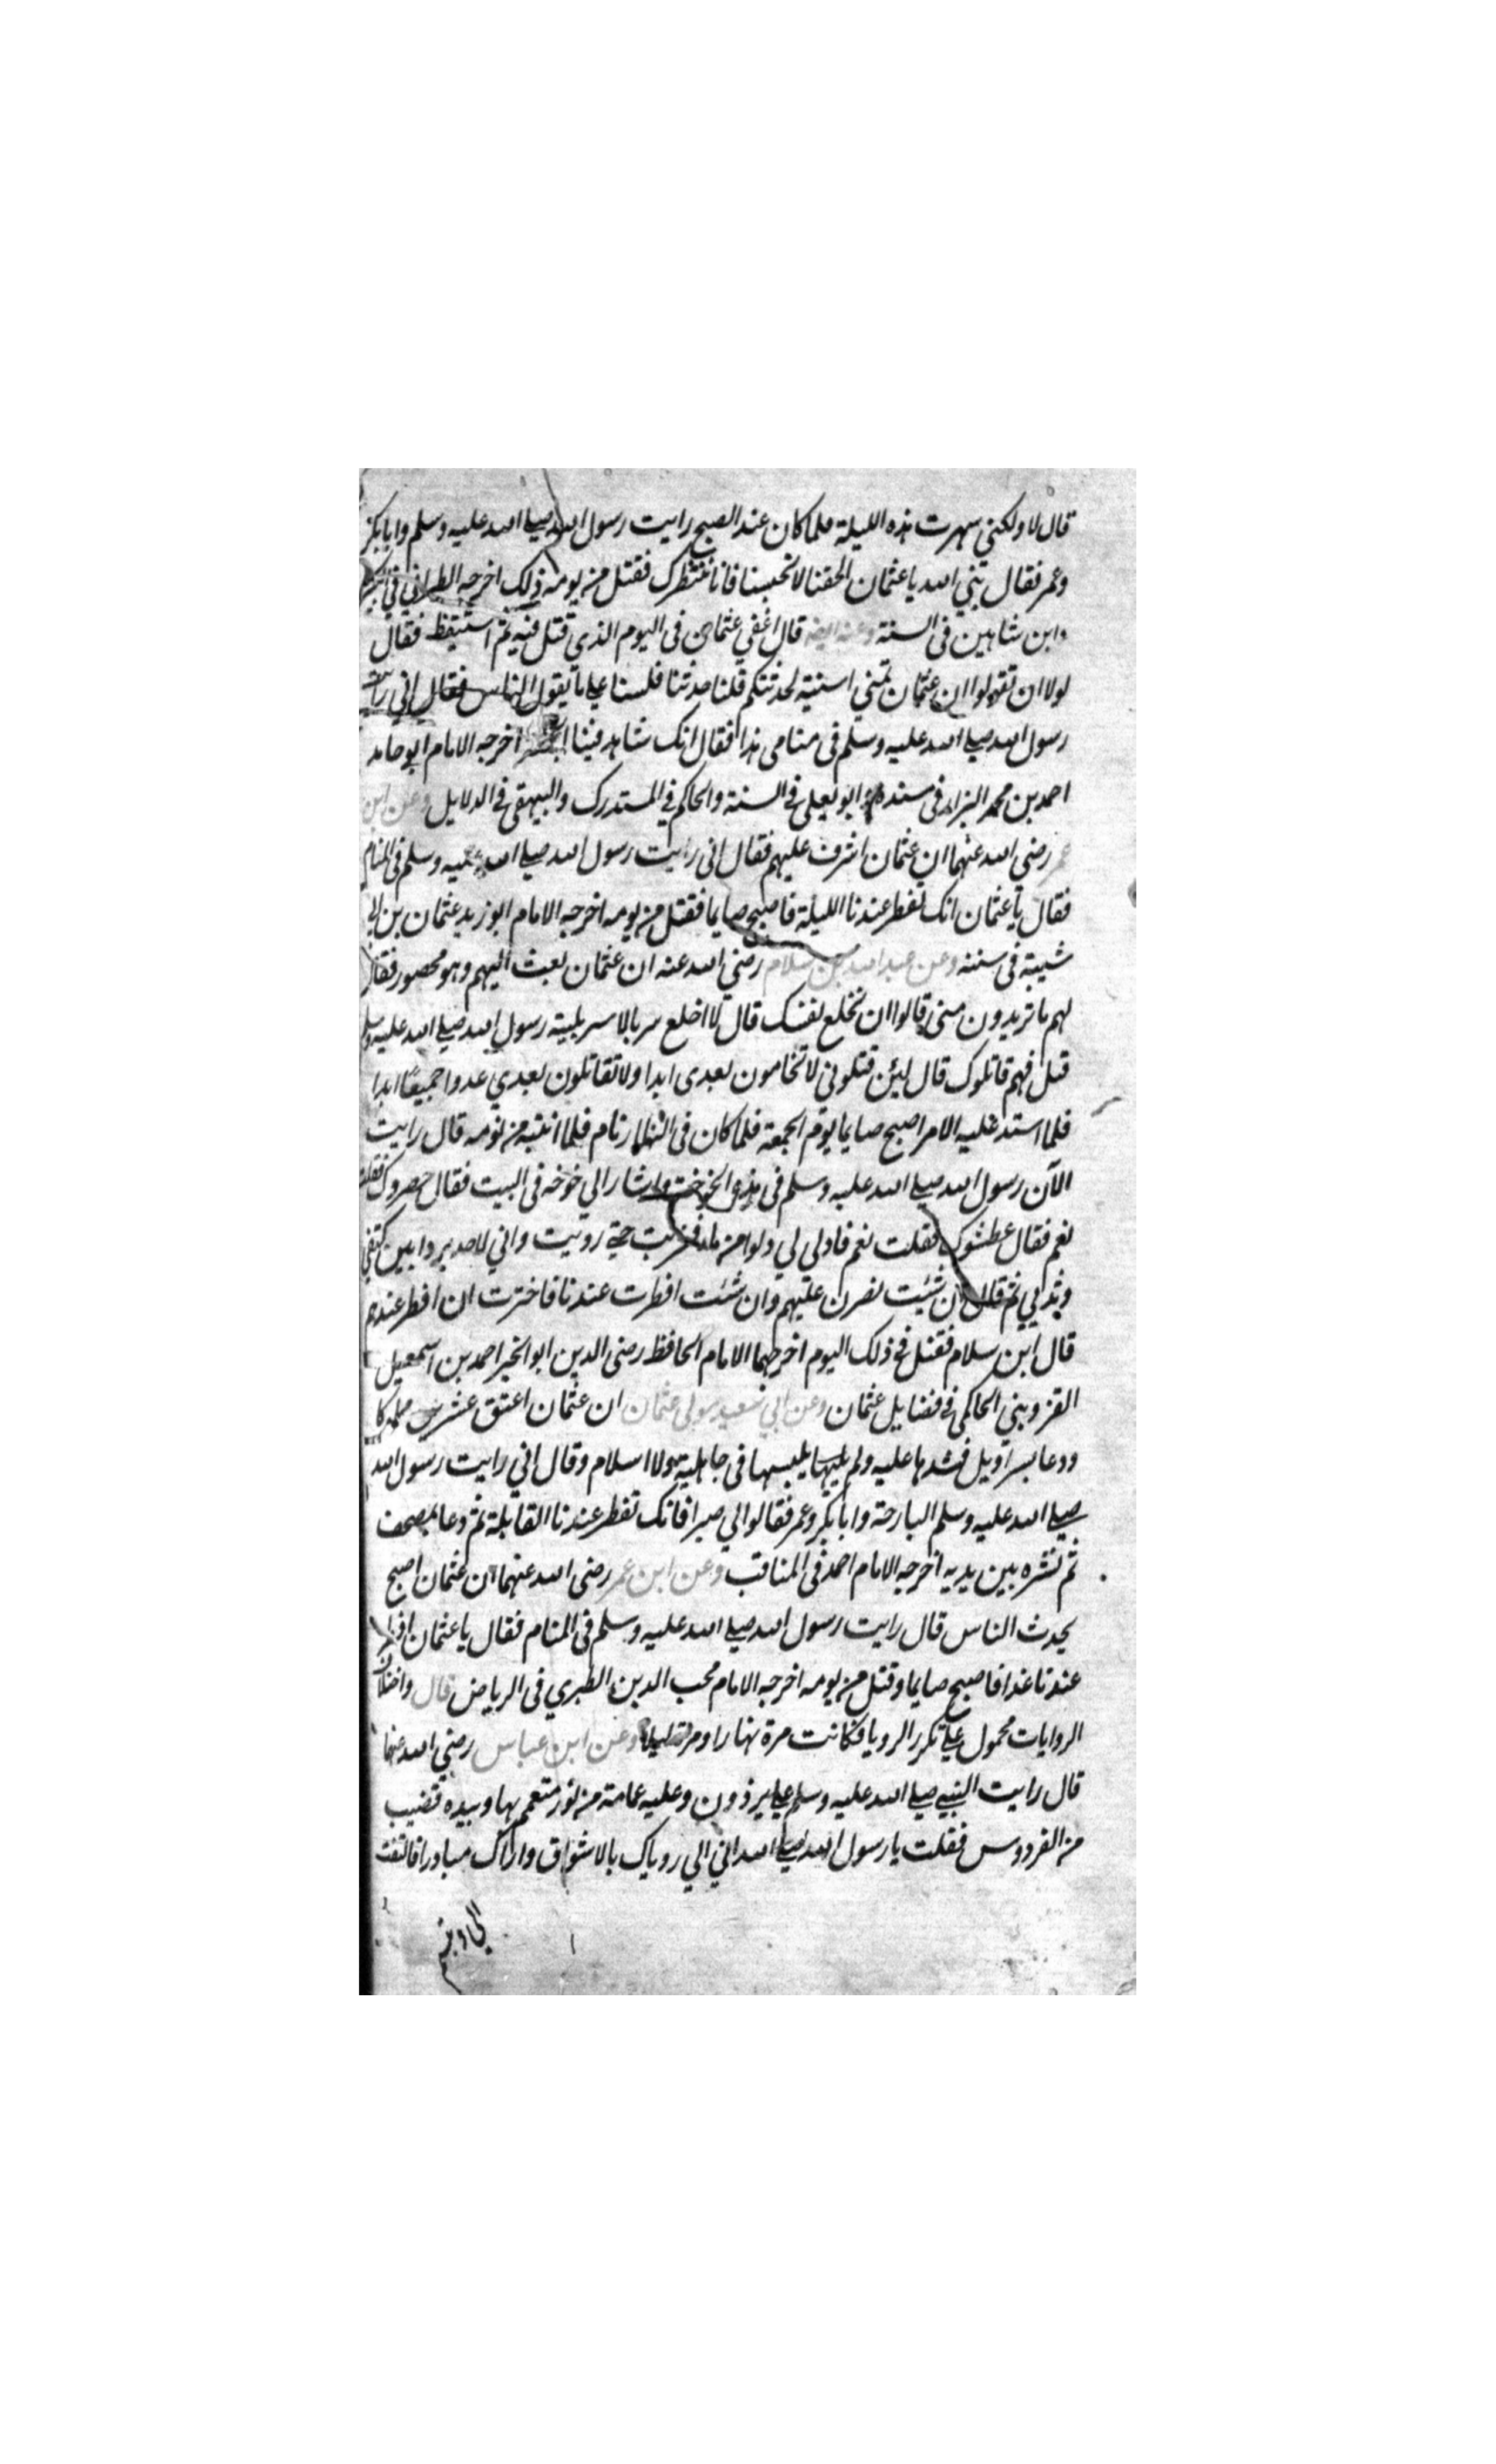 قال لا ولكني سهرت هذه الليلة فلما كان عند الصبح رايت رسول الله صلي الله عليه وسلم وابابكر
وعمر فقال نبي الله يا عثمان الحقنا لا تحبسنا فانا ننتظرك فقتل من يومه ذلك اخرجه الطبراني في
وابن شاهين في السنة وعنه ايضا قال اغفي عثمان في اليوم الذي قتل فيه ثم استيقظ فقال
لولا ان تقولوا ان عثمان تمني امنية لحدثتكم قلنا حدثنا فلسنا علي ما يقول الناس فقال اني رايت
رسول الله صلي الله عليه وسلم في منامي هذا فقال انك شاهد فينا الجمعة اخرجه الامام ابو حامد
احمد بن محمد البزار في مسنده وابو يعلي في السنة والحاكم في المستدرك والبيهقي في الدلايل وعن ابن
عمر رضي الله عنهما ان عثمان اشرف عليهم فقال اني رايت رسول الله صلي الله عليه وسلم في المنام
فقال يا عثمان انك تفطر عندنا الليلة فاصبح صايما فقتل من يومه اخرجه الامام ابو زيد عثمان بن ابي
شيبة في سننه وعن عبد الله بن سلام رضي الله عنه ان عثمان بعث اليهم وهو محصور فقال
لهم ما تريدون مني قالوا ان تخلع نفسك قال لا اخلع سربالا سربلنيه رسول الله صلي الله عليه وسلم
قتل فهم قاتلوك قال لئن قتلوني لا تحامون بعدي ابدا ولا تقاتلون بعدي عدوا جميعا ابدا
فلما استد عليه الامر اصبح صايما يوم الجمعة فلما كان في النهار نام فلما انتبه من نومه قال رايت
الآن رسول الله صلي الله عليه وسلم في هذه الخوخة واشار الي خوخه في البيت فقال حصروك فقلت
نعم فقال عطشوك فقلت نعم فادلي لي دلوا من ماء فشربت حتي رويت واني لاجد برده بين كتفي
وثديي ثم قال ان شئت نصرن عليهم وان شئت افطرت عندنا فاخترت ان افطر عندهم
قال ابن سلام فقتل في ذلك اليوم اخرجهما الامام الحافظ رضي الدين ابو الخير احمد بن اسمعيل
القزويني الحاكمي في فضايل عثمان وعن ابي سعيد مولي عثمان ان عثمان اعتق عشرين مملوكا
ودعا بسراويل فشدها عليه ولم يلبسها في جاهلية ولا اسلام وقال اني رايت رسول الله
صلي الله عليه وسلم البارحة وابابكر وعمر فقالوا لي صبرا فانك تفطر عندنا القابلة ثم دعا بمصحف
ثم نشره بين يديه اخرجه الامام احمد في المناقب وعن ابن عمر رضي الله عنهما ان عثمان اصبح
يحدث الناس قال رايت رسول الله صلي الله عليه وسلم في المنام فقال يا عثمان افطر
عندنا غدا فاصبح صايما وقتل من يومه اخرجه الامام محب الدين الطبري في الرياض قال واختلاف
الروايات محمول علي تكرر الرويا فكانت مرة نهارا ومرة ليلا وعن ابن عباس رضي الله عنهما
قال رايت النبي صلي الله عليه وسلم علي برذون وعليه عمامة من نور متعمم بها وبيده قضيب
من الفردوس فقلت يا رسول الله صلي الله اني الي روياك بالاشواق واراك مبادرا فالتفت